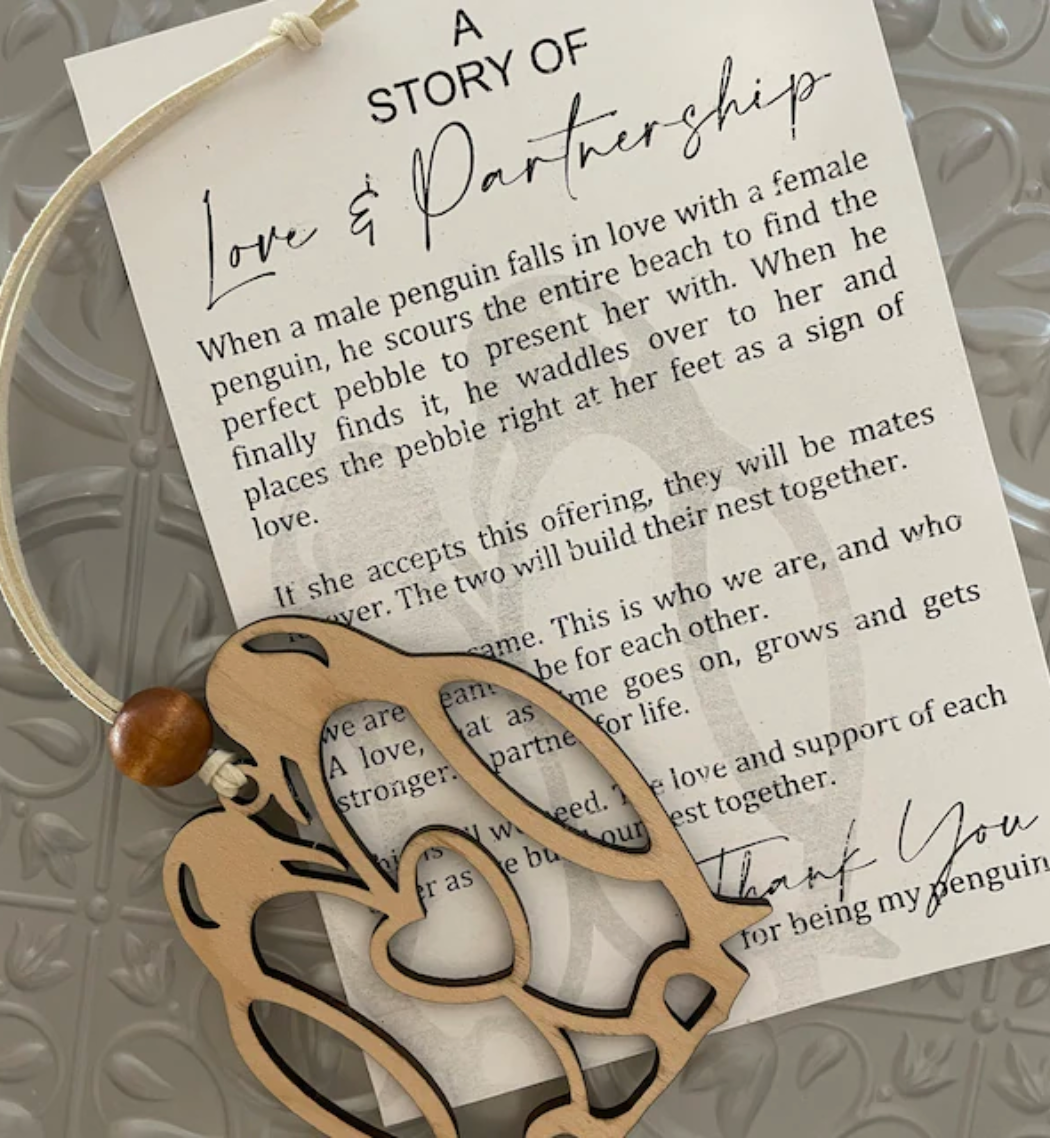 A
STORY OF
Love & Partnership
When a male penguin falls in love with a female
penguin, he scours the entire beach to find the
perfect pebble to present her with. When he
finally finds it, he waddles over to her and
places the pebble right at her feet as a sign of
love.
If she accepts this offering, they will be mates
The two will build their nest together.
This is who we are, and who
we are be for each other.
A love, at as goes on, grows and gets
stronger. for life.
love and support of each
as our together.
Thank You
for being my penguin